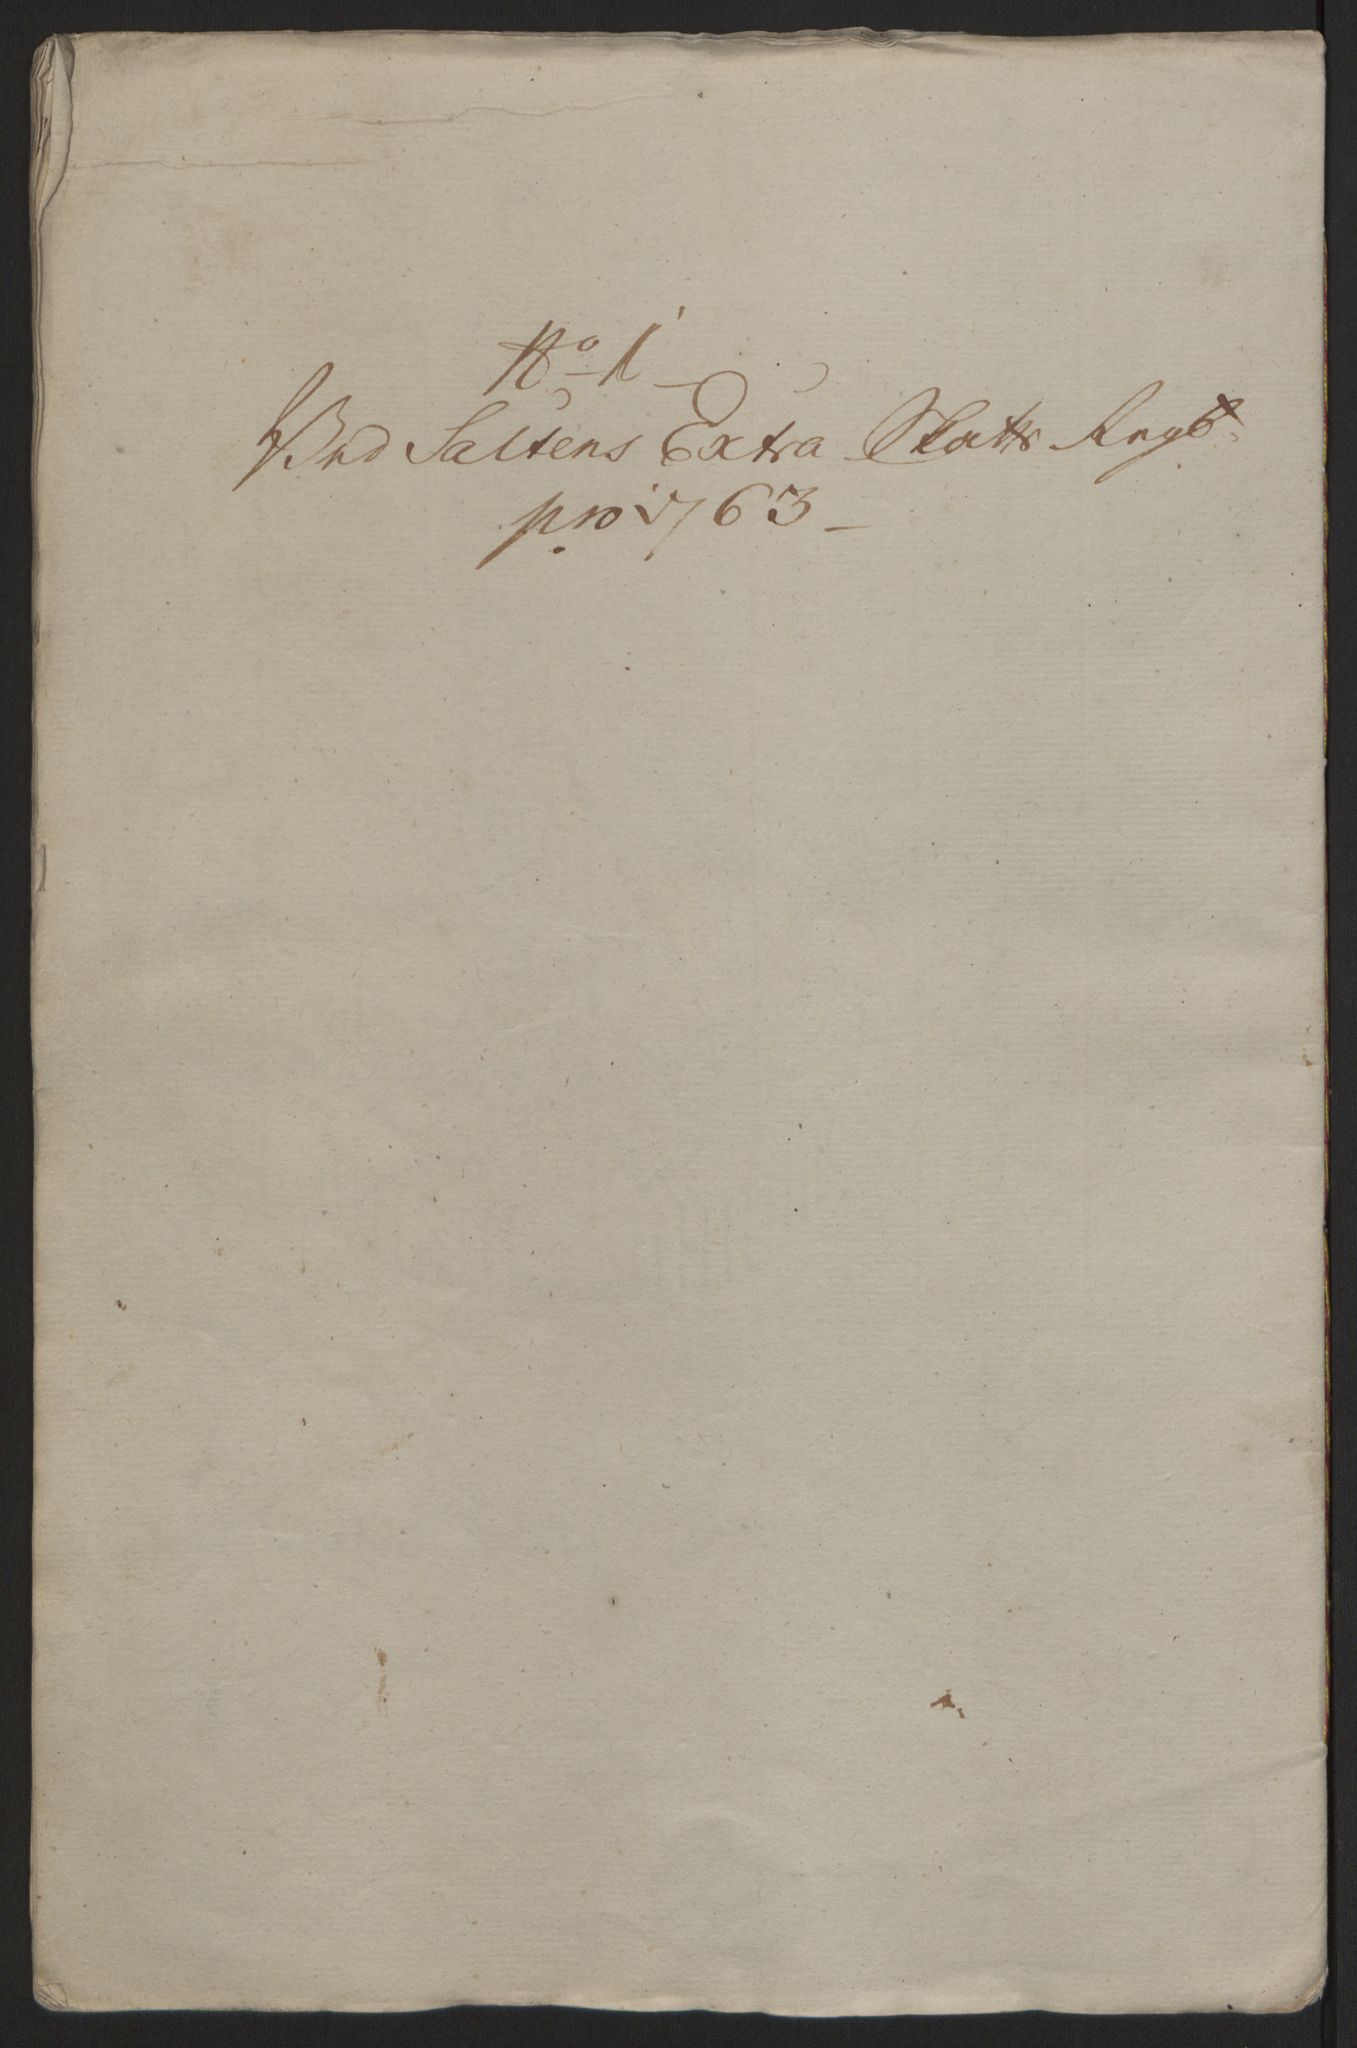 No 1
Ved Saltens Extra Skatts Regsk
pro 1763